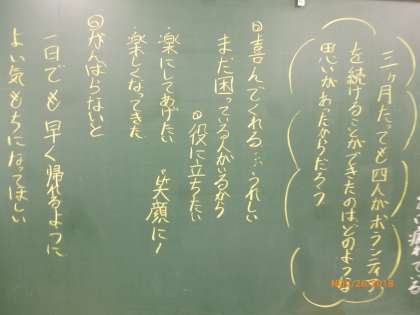 三ヶ月たっても四人がボランティア
を続けることができたのはどのような
思いがあったからだろう
喜んでくれる…うれしい
まだ困っている人がいるから
役に立ちたい
楽にしてあげたい
笑顔に！
楽しくなってきた
がんばらないと
一日でも早く帰れるように
よい気もちになってほしい